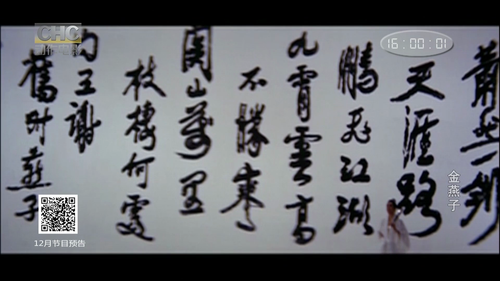 CHC
动作电影
16:00:01
天涯路
鵬飛江湖
九霄雲高
不勝寒
関山萬里
枝棲何處
王謝
舊時燕子
金燕子
12月节目预告